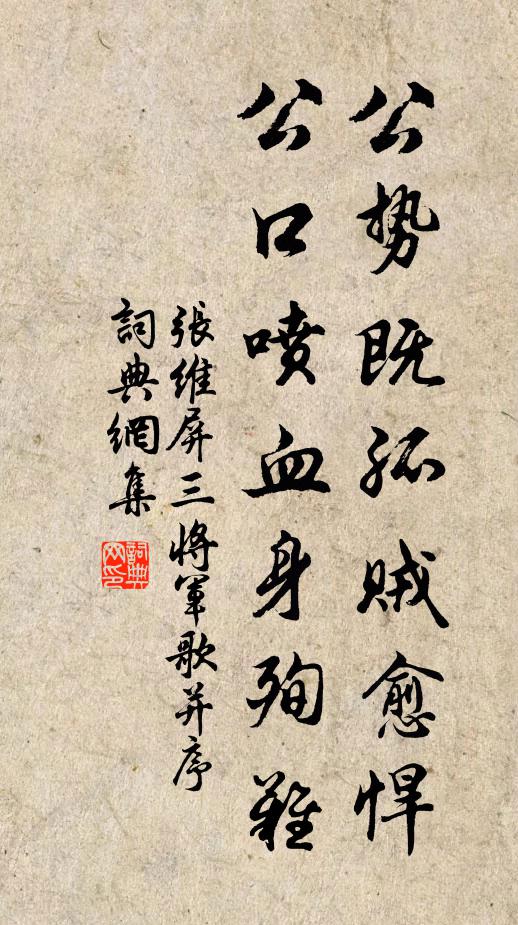 公势既孤贼愈悍
公口喷血身殉難
張維屏三将軍歌并序
詞典網集
詞典